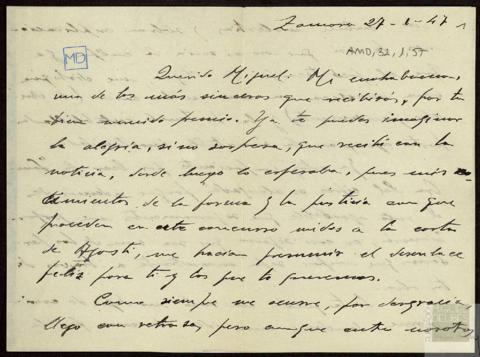 Zamora 27-1-47
MD
AMD, 32, 1, 57
Querido Miguel: Mi enhorabuena,
una de las más sinceras que recibirás, por tu
bien merecido premio. Ya te puedes imaginar
la alegría, sino sorpresa, que recibí con la
noticia, desde luego lo esperaba, pues mis
de la forma y la justicia con que
proceden en este concurso unidos a la carta
de Agustí, me hacían presumir el desenlace
feliz para ti y los que te queremos.
Como siempre me ocurre, por desgracia,
llego con retraso, pero aunque entre nosotros